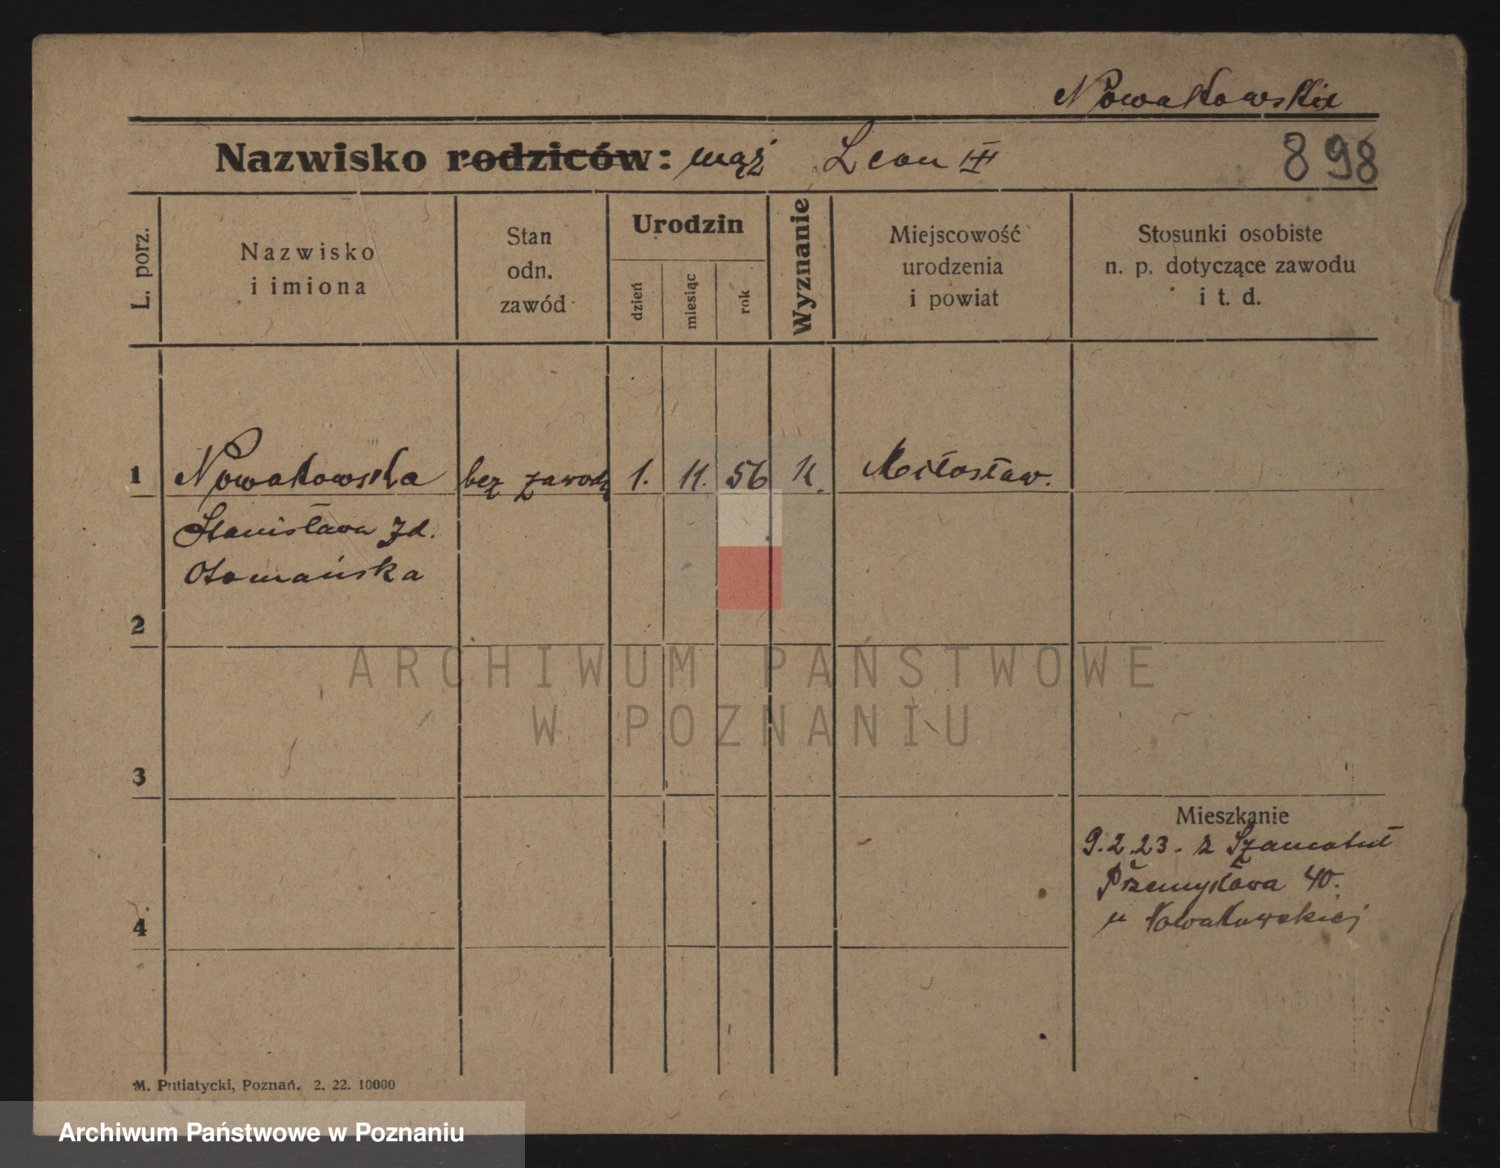 Nowakowskie
Nazwisko rodziców: mąż Leon III
898
L. porz.
Nazwisko
i imiona
Stan
odn.
zawód
Urodzin
dzień
miesiąc
rok
Wyznanie
Miejscowość
urodzenia
i powiat
Stosunki osobiste
n. p. dotyczące zawodu
i t. d.
1 Nowakowska bez zawodu 1. 11. 56 K. Miłosław.
Stanisława zd.
Otomańska
2
3
4
Mieszkanie
9.2.23. z Szamotuł
Przemysława 40.
u Nowakowskiej
M. Putiatycki, Poznań. 2. 22. 10000
ARCHIWUM PAŃSTWOWE
W POZNANIU
Archiwum Państwowe w Poznaniu